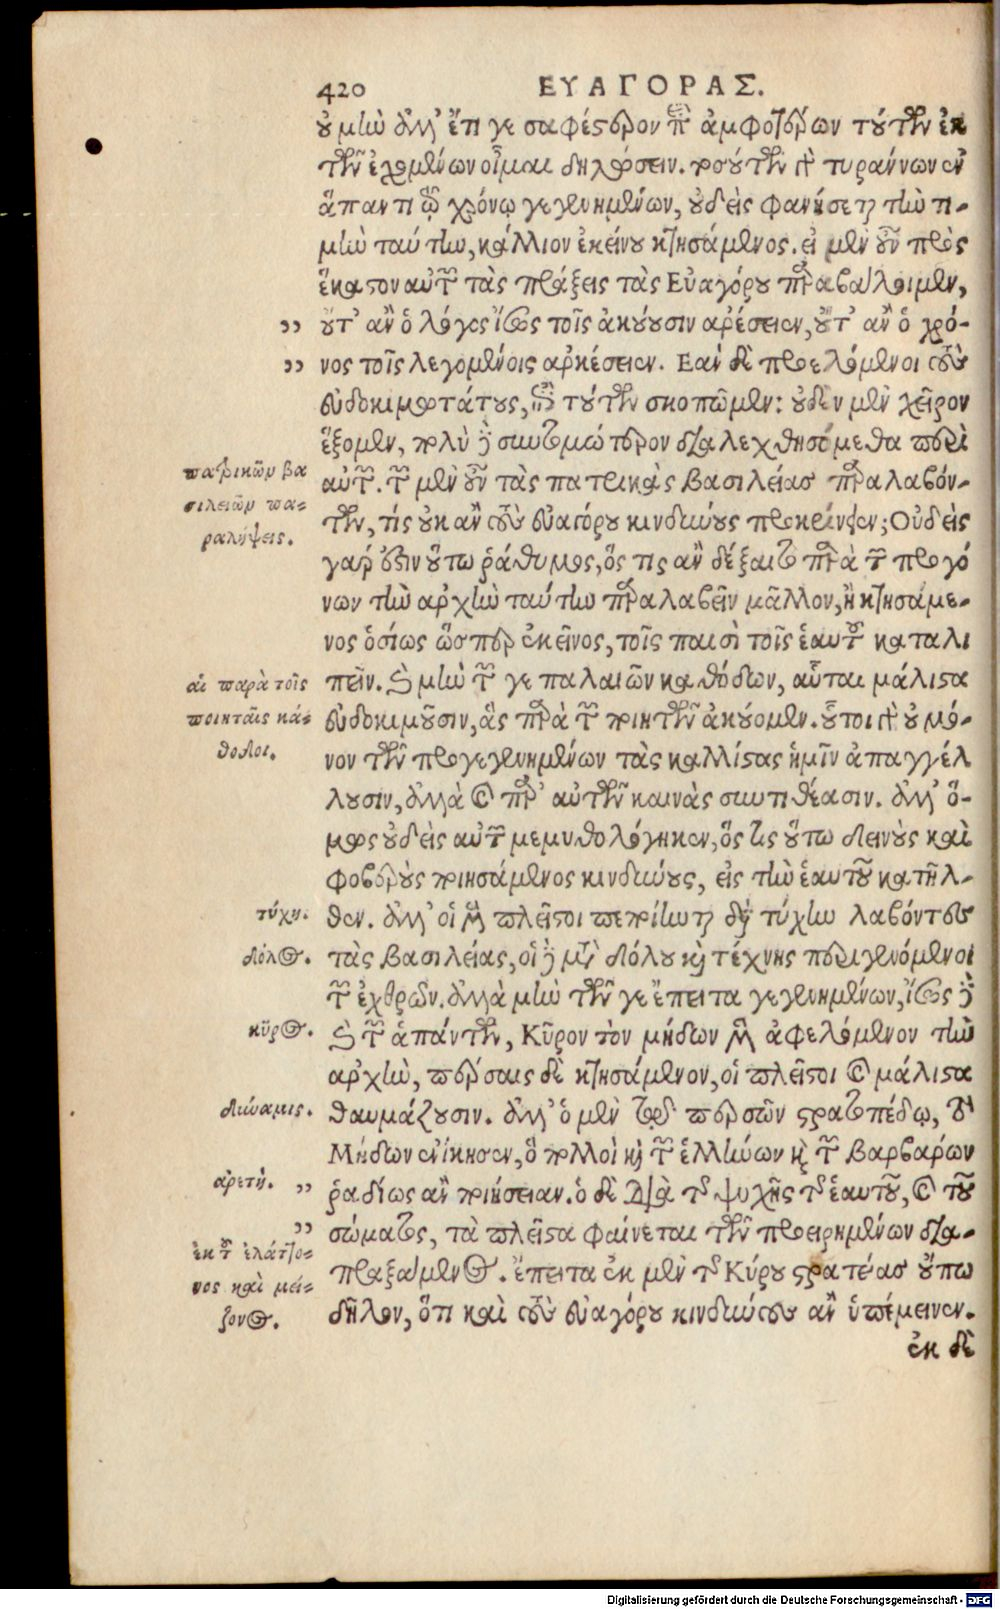 420 ΕΥΑΓΟΡΑΣ.
οὐ μὴν ἀλλ' ἔτι γε σαφέστερον περὶ ἀμφοτέρων τούτων ἐκ
τῶν ἐχομένων οἶμαι δηλώσειν. τούτων γὰρ τυράννων ἐν
ἅπαντι τῷ χρόνῳ γεγενημένων, οὐδεὶς φανήσεται τὴν τι-
μὴν ταύτην, κάλλιον ἐκείνου κτησάμενος. εἰ μὲν οὖν πρὸς
ἕκαστον αὐτῶν τὰς πράξεις τὰς Εὐαγόρου παραβάλλοιμεν,
„ οὔτ' ἂν ὁ λόγος ἴσως τοῖς ἀκούουσιν ἁρέσειεν, οὔτ' ἂν ὁ χρό-
„ νος τοῖς λεγομένοις ἀρκέσειεν. Ἐὰν δὲ προελόμενοι τοὺς
εὐδοκιμωτάτους, ἐπὶ τούτων σκοπῶμεν: οὐδὲν μὲν χεῖρον
ἕξομεν, πολὺ δὲ συντομώτερον διαλεχθησόμεθα περὶ
πατρικῶν βα
αὐτῶν. τῶν μὲν οὖν τὰς πατρικὰς βασιλείας παραλαβόν-
σιλειῶν πα-
των, τίς οὐκ ἂν τοὺς εὐαγόρου κινδύνους προκρίνειεν; Οὐδεὶς
ραλήψεις.
γάρ ἐστιν οὕτω ῥάθυμος, ὅς τις ἂν δέξαιτο παρὰ τῶν προγό
νων τὴν ἀρχὴν ταύτην παραλαβεῖν μᾶλλον, ἢ κτησάμε-
νος ὁσίως ὥσπερ ἐκεῖνος, τοῖς παισὶ τοῖς ἑαυτοῦ καταλι
αἱ παρὰ τοῖς
πεῖν. καὶ μὴν τῶν γε παλαιῶν καθόδων, αὗται μάλιστα
ποιηταῖς κά-
εὐδοκιμοῦσιν, ἃς παρὰ τῶν ποιητῶν ἀκούομεν. οὗτοι γὰρ οὐ μό-
θοδοι.
νον τῶν προγεγενημένων τὰς καλλίστας ἡμῖν ἀπαγγέλ
λουσιν, ἀλλὰ καὶ παρ' αὑτῶν καινὰς συντιθέασιν. ἀλλ' ὅ-
μως οὐδεὶς αὐτῶν μεμυθολόγηκεν, ὅς τις οὕτω δεινοὺς καὶ
φοβεροὺς ποιησάμενος κινδύνους, εἰς τὴν ἑαυτοῦ κατῆλ-
τύχη.
θεν. ἀλλ' οἱ μὲν πλεῖστοι πεποίηνται διὰ τύχην λαβόντες
δόλος.
τὰς βασιλείας, οἱ δὲ μετὰ δόλου καὶ τέχνης περιγενόμενοι
τῶν ἐχθρῶν. ἀλλὰ μὴν τῶν γε ἔπειτα γεγενημένων, ἴσως δὲ
κῦρος.
καὶ τῶν ἁπάντων, Κῦρον τὸν μήδων μὲν ἀφελόμενον τὴν
ἀρχὴν, πέρσαις δὲ κτησάμενον, οἱ πλεῖστοι καὶ μάλιστα
δύναμις.
θαυμάζουσιν. ἀλλ' ὁ μὲν τῷ περσῶν στρατοπέδῳ, τὸ
Μήδων ἐνίκησεν, ὃ πολλοὶ καὶ τῶν ἑλλήνων καὶ τῶν βαρβάρων
ἀρετή. „
ῥᾳδίως ἂν ποιήσειαν. ὁ δὲ διὰ τῆς ψυχῆς τῆς ἑαυτοῦ, καὶ τοῦ
„
σώματος, τὰ πλεῖστα φαίνεται τῶν προειρημένων δια-
ἐκ τοῦ ἐλάττο-
πραξάμενος. ἔπειτα ἐκ μὲν τῆς Κύρου στρατείας οὔπω
νος καὶ μεί-
ζονος.
δῆλον, ὅτι καὶ τοὺς εὐαγόρου κινδύνους ἂν ὑπέμεινεν.
ἐκ δὲ
Digitalisierung gefördert durch die Deutsche Forschungsgemeinschaft - DFG